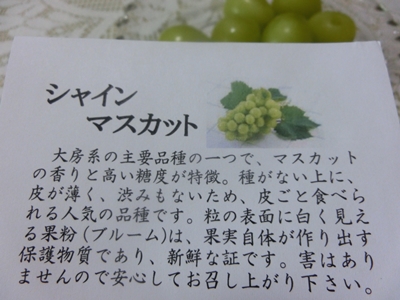 シャイン
マスカット
大房系の主要品種の一つで、マスカット
の香りと高い糖度が特徴。種がない上に、
皮が薄く、渋みもないため、皮ごと食べら
れる人気の品種です。粒の表面に白く見え
る果粉(ブルーム)は、果実自体が作り出す
保護物質であり、新鮮な証です。害はあり
ませんので安心してお召し上がり下さい。